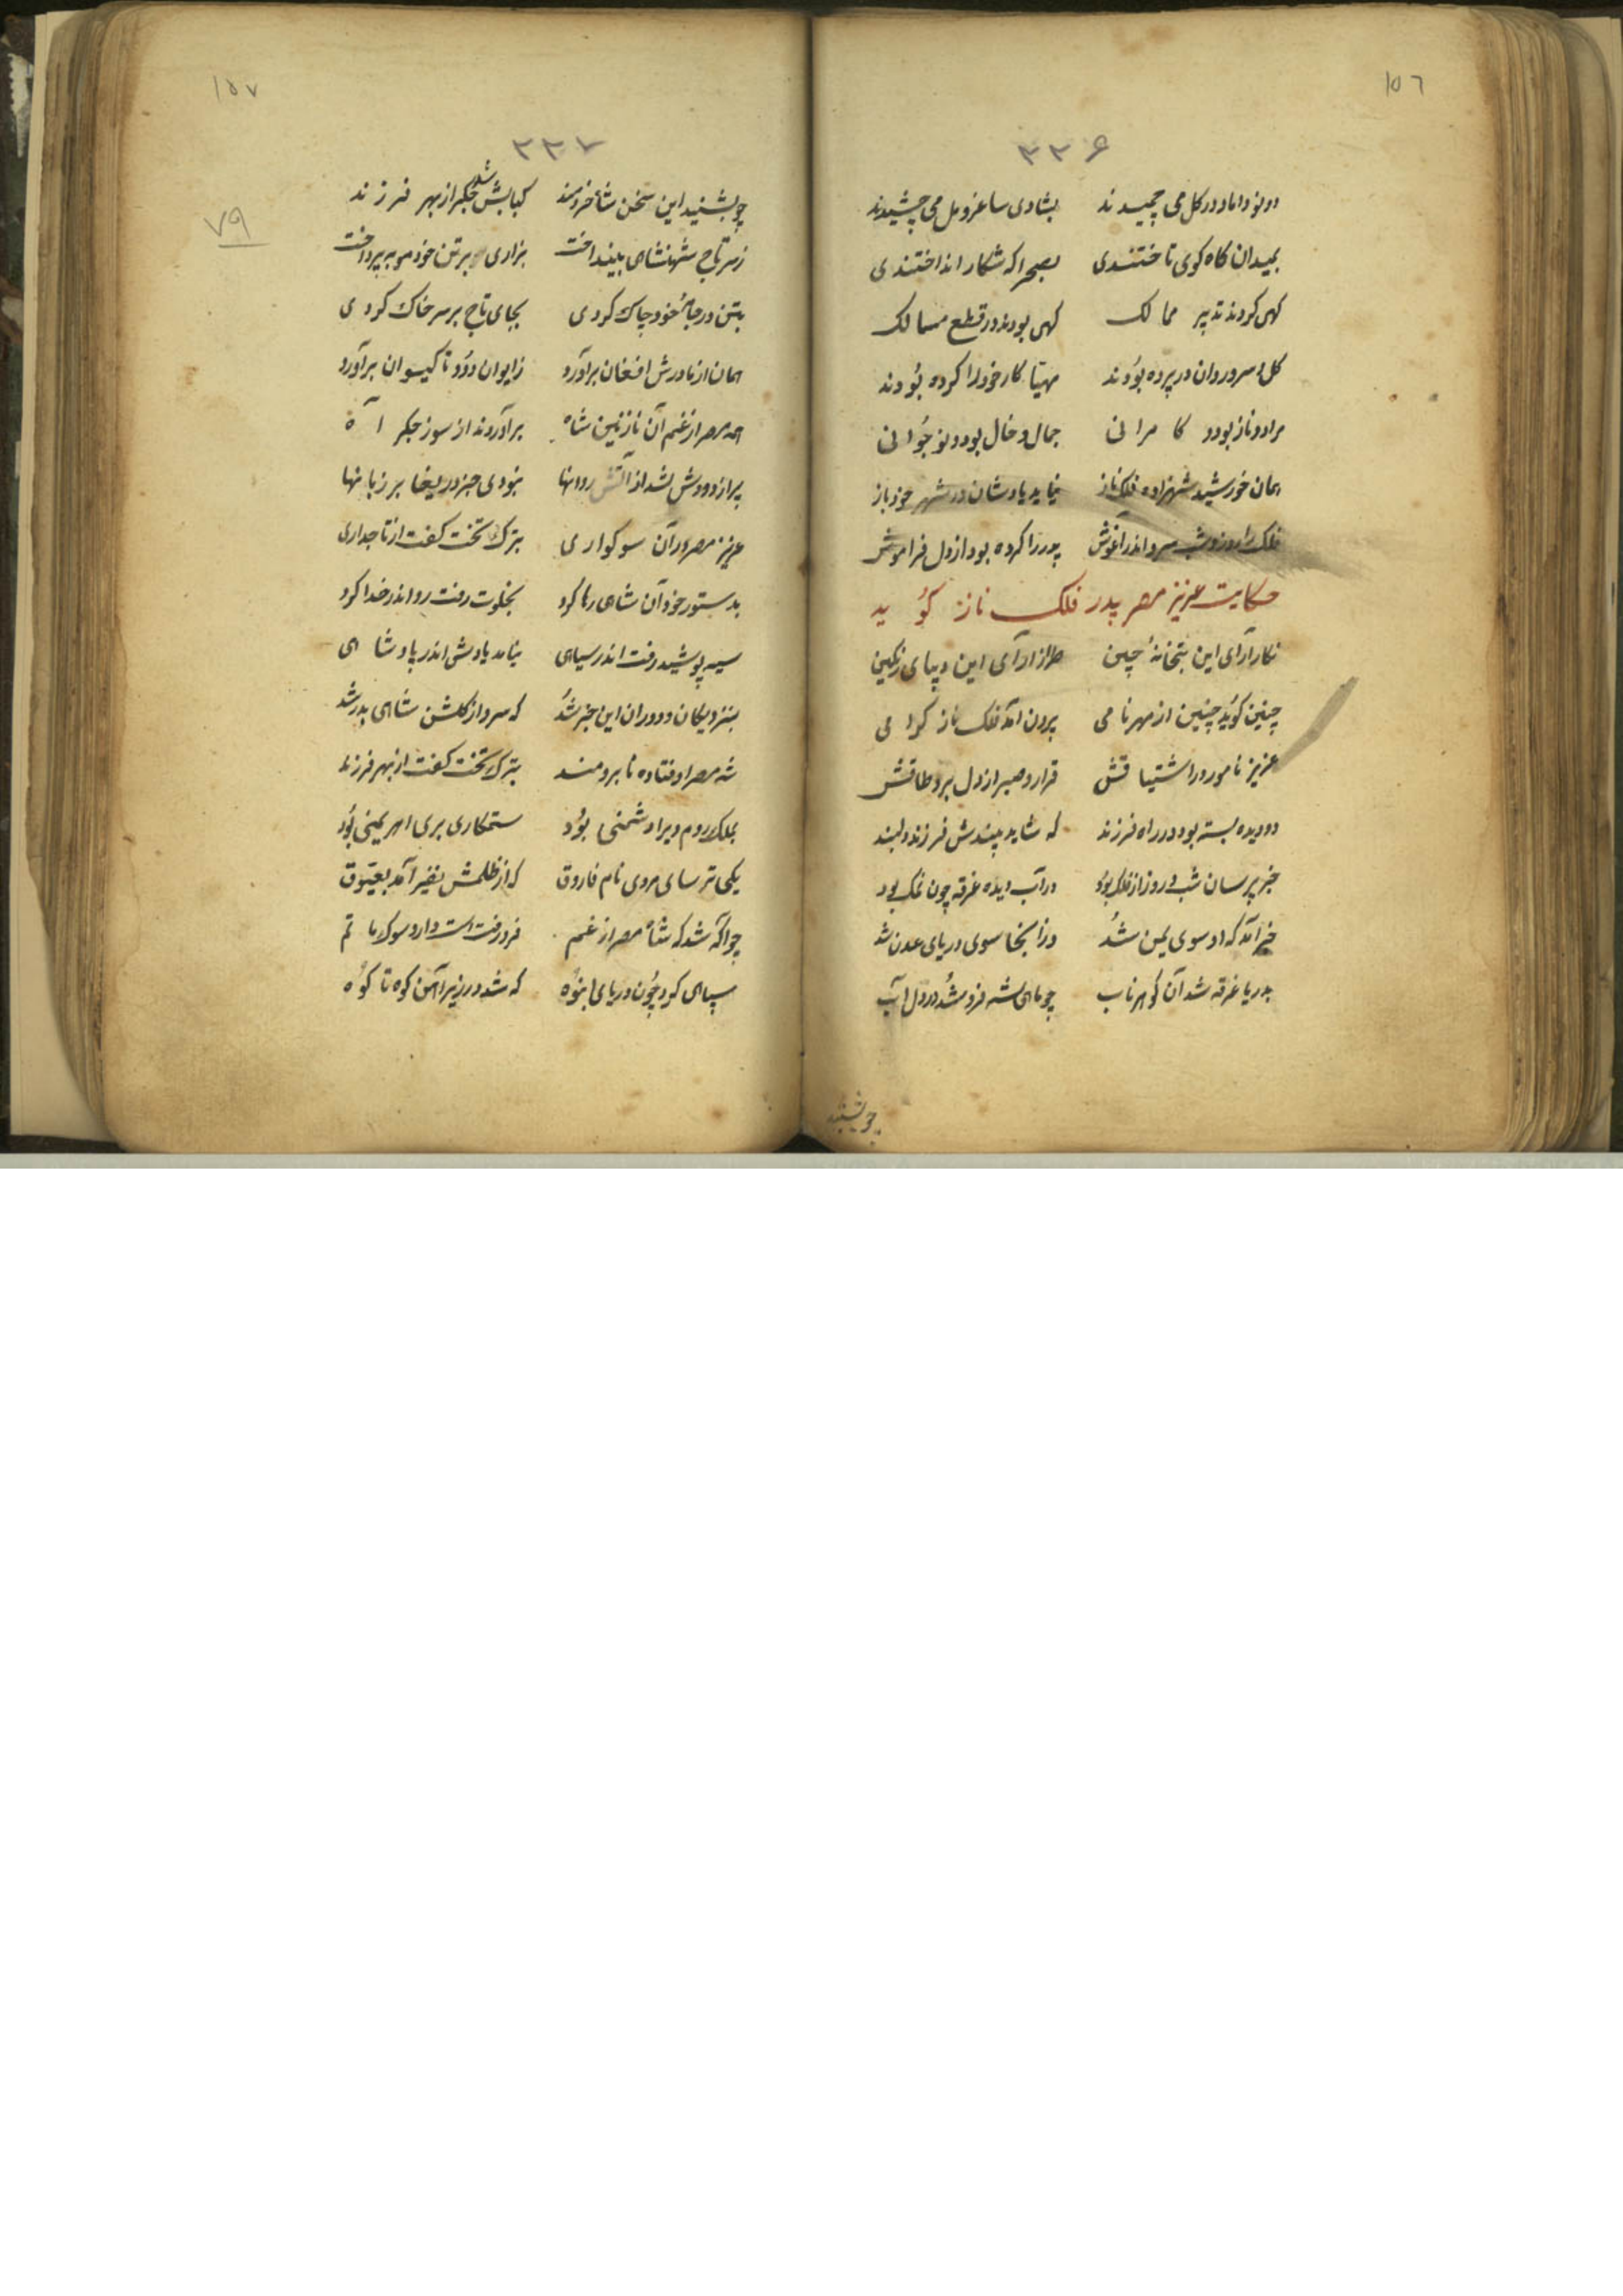 ١٥٦
٣٣۶
دو نو داماد در كل می چمیدند بشادی ساغر و مل می چشیدند
بمیدان كاه كوی تاختندی بصحرا كه شكار انداختندی
كهی كردند تدبیر ممالك كهی بودند در قطع مسالك
كل و سرو روان در پرده بودند مهیّا كار خود را كرده بودند
مراد و ناز بود و كامرانی جمال و خال بود و نوجوانی
همان خورشید شهزاده فلك ناز نیامد یادشان در شهر خود باز
فلك را روز و شب سرو اندر آغوش پدر را كرده بود از دل فراموش
حكایت عزیز مصر پدر فلك ناز كوید
نكار آرای این بتخانهٔ چین طراز آرای این دیبای رنكین
چنین كوید چنین از مهر نامی برون آمد فلك ناز كرامی
عزیز نامور در اشتیاقش قرار و صبر از دل برد طاقش
دو دیده بسته بود در راه فرزند كه شاید بیندش فرزند دلبند
خبر پرسان شب و روز از فلك بود در آب دیده غرقه چون نمك بود
خبر آمد كه او سوی یمن شد وز انجا سوی دریای عدن شد
بدریا غرقه شد آن كوهر ناب چو ماهی شه فرو شد در دل آب
چو بشنید
١٥٧
٣٣٧
٧٩
چو بشنید این سخن شاه خردمند كبابش شد جكر از بهر فرزند
ز سر تاج شهنشاهی بینداخت بزاری بر تن خود مویه پرداخت
بتن در جامهٔ خود چاك كردی بجای تاج بر سر خاك كردی
همان از مادرش افغان برآورد ز ایوان دود تا كیوان برآورد
همه مصر از غم آن نازنین شاه برآوردند از سوز جكر آه
پر از دودش شد از آتش روانها نبودی جز دریغا بر زبانها
عزیز مصر در آن سوكواری بترك تخت كفت از تاجداری
بدستور خود آن شاهی رها كرد بخلوت رفت رو اندر خدا كرد
سیه پوشید رفت اندر سیاهی نیامد یادش اندر پادشاهی
بنزدیكان و دوران این خبر شد كه سرو از كلشن شاهی بدر شد
شه مصر اوفتاده نابرومند بترك تخت كفت از بهر فرزند
بملك روم ویرا دشمنی بود ستمكاری بری اهریمنی بود
یكی ترسای مردی نام فاروق كه از ظلمش نفیر آمد بعیّوق
چو آكه شد كه شاه مصر از غم فرو رفت است و دارد سوك و ماتم
سپاهی كرد چون دریای انبوه كه شد در زیر آهن كوه تا كوه